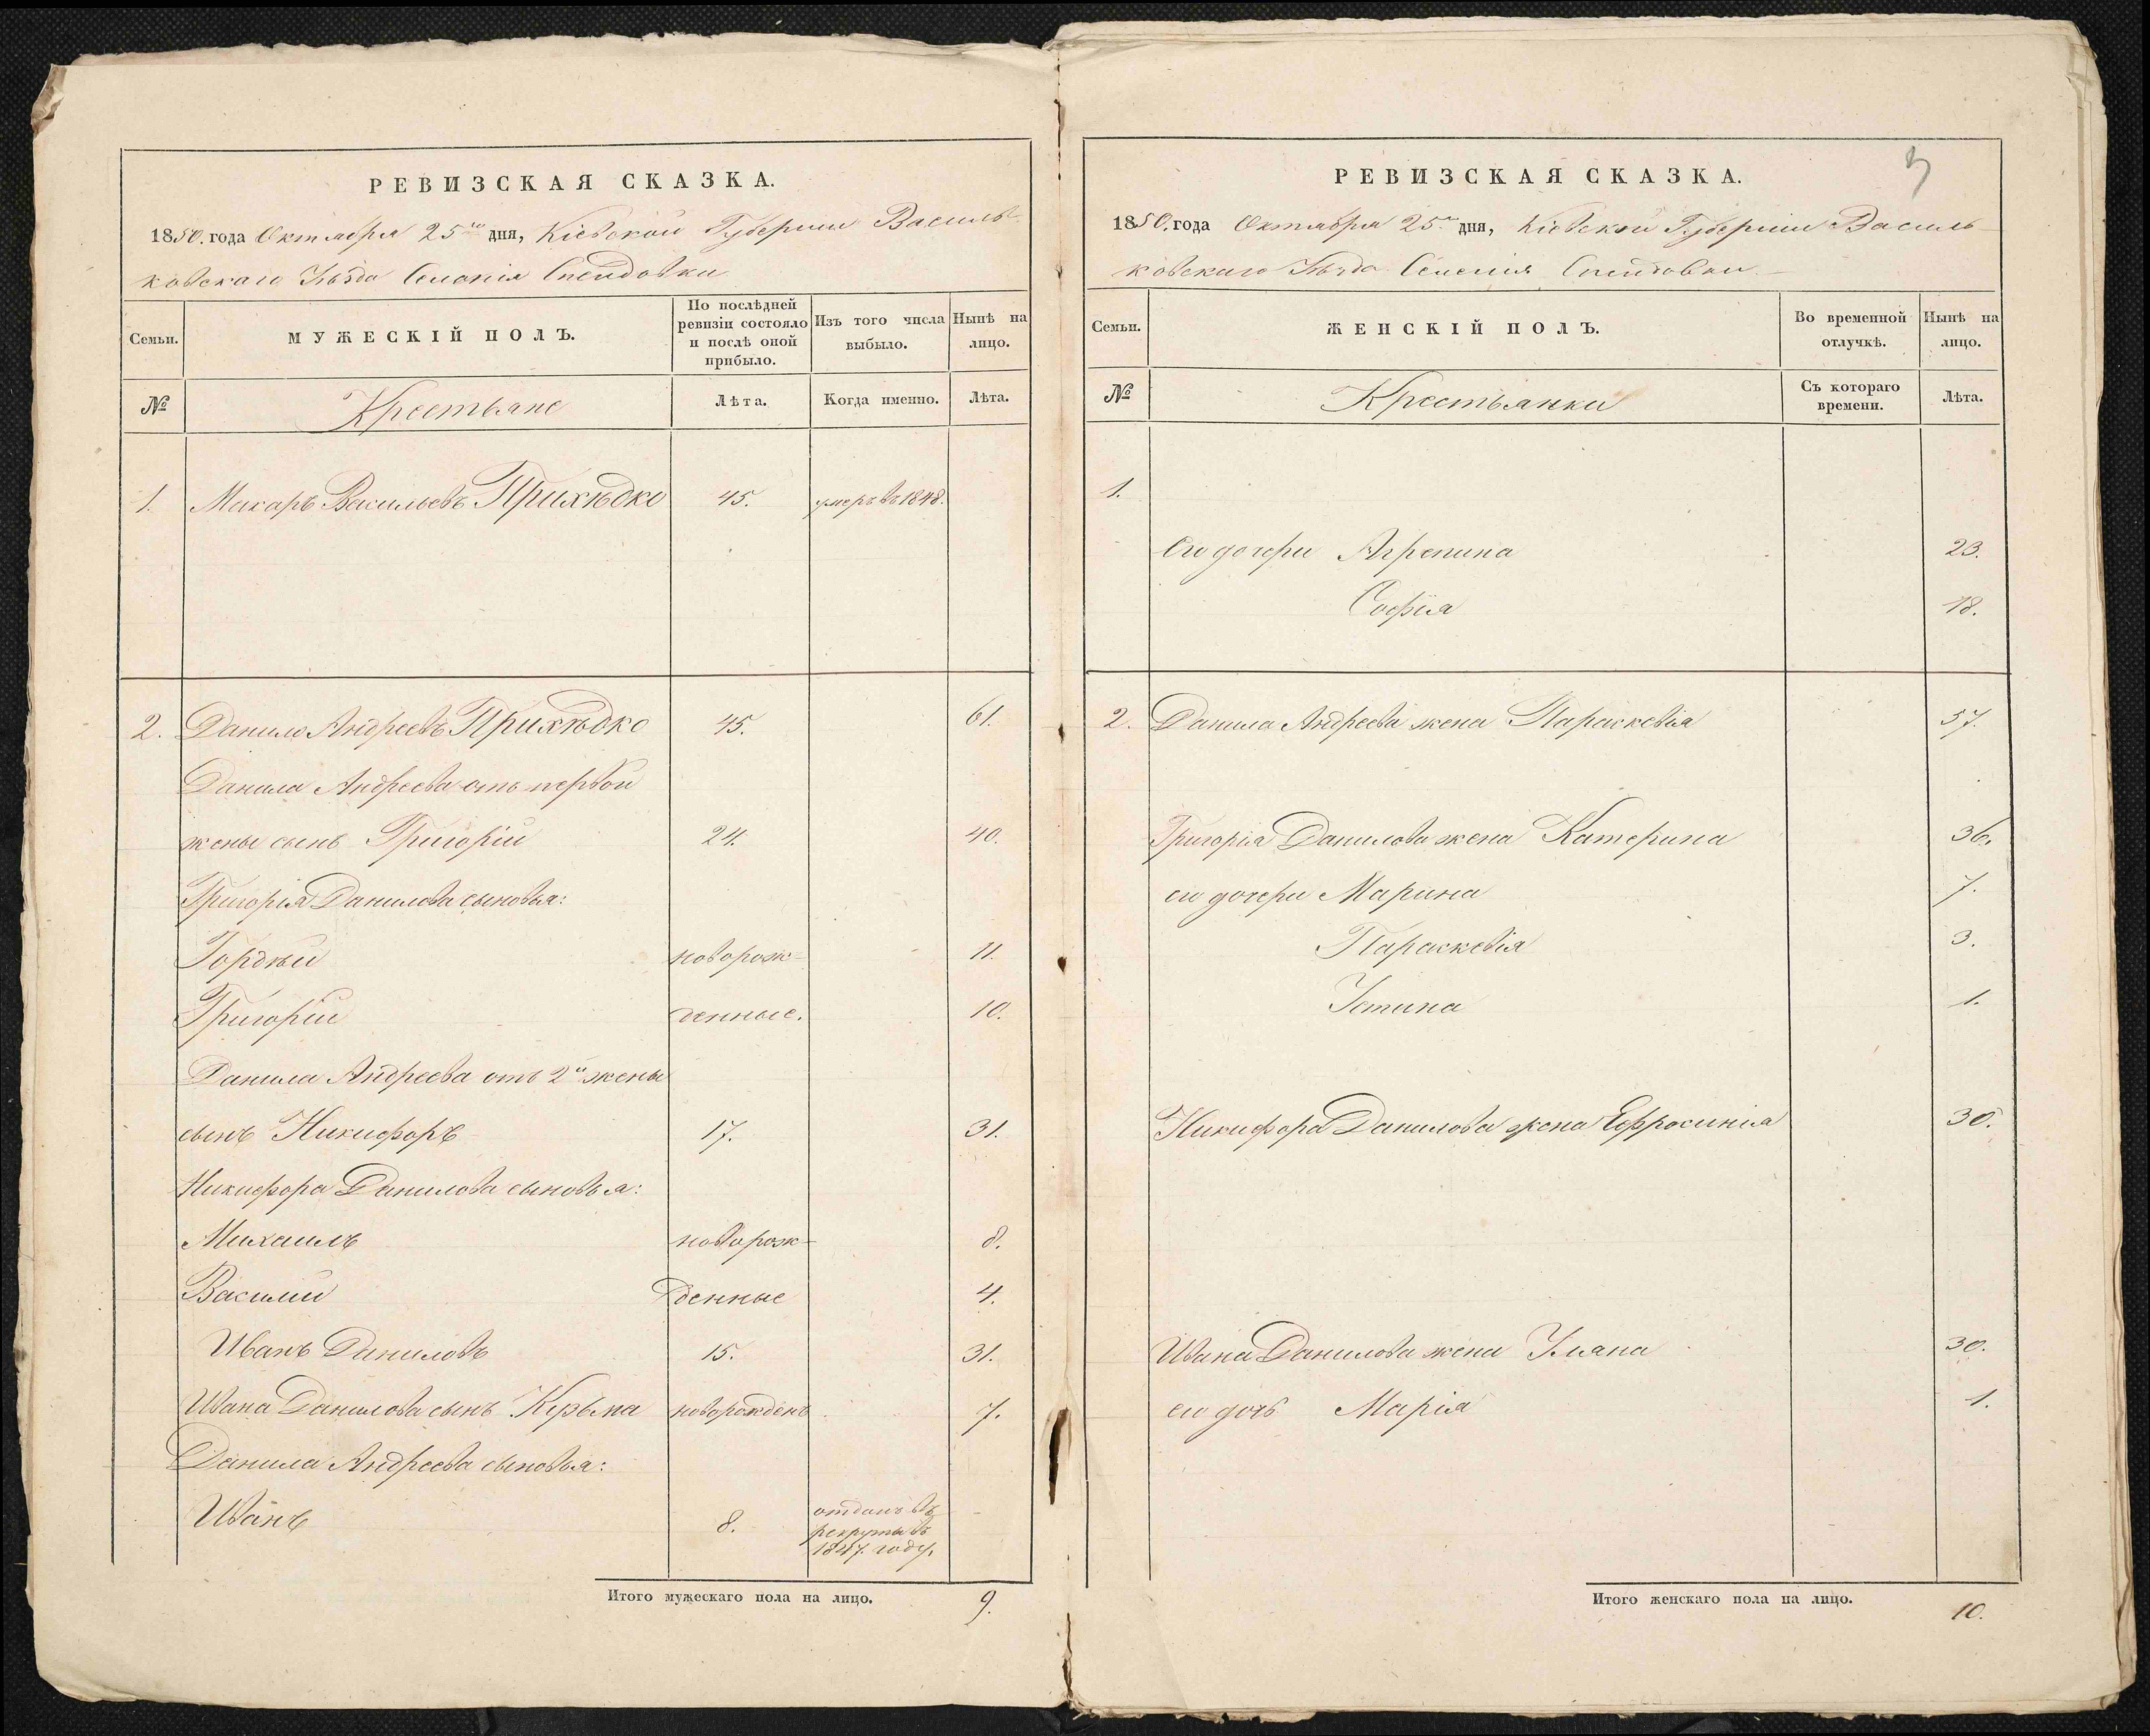 РЕВИЗСКАЯ СКАЗКА.
1850. года Октября 25го дня, Кіевской Губерніи Василь-
ковскаго Уѣзда Селенія
Семьи.
МУЖЕСКІЙ ПОЛЪ.
По послѣдней
ревизіи состояло
и послѣ оной
прибыло.
Изъ того числа
выбыло.
Нынѣ на
лицо.
№
Крестьяне
Лѣта.
Когда именно.
Лѣта.
1. Макаръ Васильевъ Прихѣдко 45. умеръ въ 1848.
2. Данило Андреевъ Прихѣдко 45. 61.
Данила Андреева отъ первой
жены сынъ Григорій 24. 40.
Григорія Данилова сыновья:
Гордѣй новорож- 11.
Григорій денные. 10.
Данила Андреева отъ 2й жены
сынъ Никифоръ 17. 31.
Никифора Данилова сыновья:
Михаилъ новорож- 8.
Василій денные 4.
Иванъ Даниловъ 15. 31.
Ивана Данилова сынъ Кузьма новорожденъ 7.
Данила Андреева сыновья:
Иванъ 8. отданъ въ
рекруты въ
1847. году.
Итого мужескаго пола на лицо. 9.
5
РЕВИЗСКАЯ СКАЗКА.
1850. года Октября 25го дня, Кіевской Губерніи Василь-
ковскаго Уѣзда Селенія
Семьи.
ЖЕНСКІЙ ПОЛЪ.
Во временной
отлучкѣ.
Нынѣ на
лицо.
№
Крестьянки
Съ котораго
времени.
Лѣта.
1.
Его дочери Агрепина 23.
Софія 18.
2. Данила Андреева жена Параскевія 57.
Григорія Данилова жена Катерина 36.
его дочери Марина 7.
Параскевія 3.
Устина 1.
Никифора Данилова жена Ефросинія 30.
Ивана Данилова жена Уляна 30.
его дочь Марія 1.
Итого женскаго пола на лицо. 10.